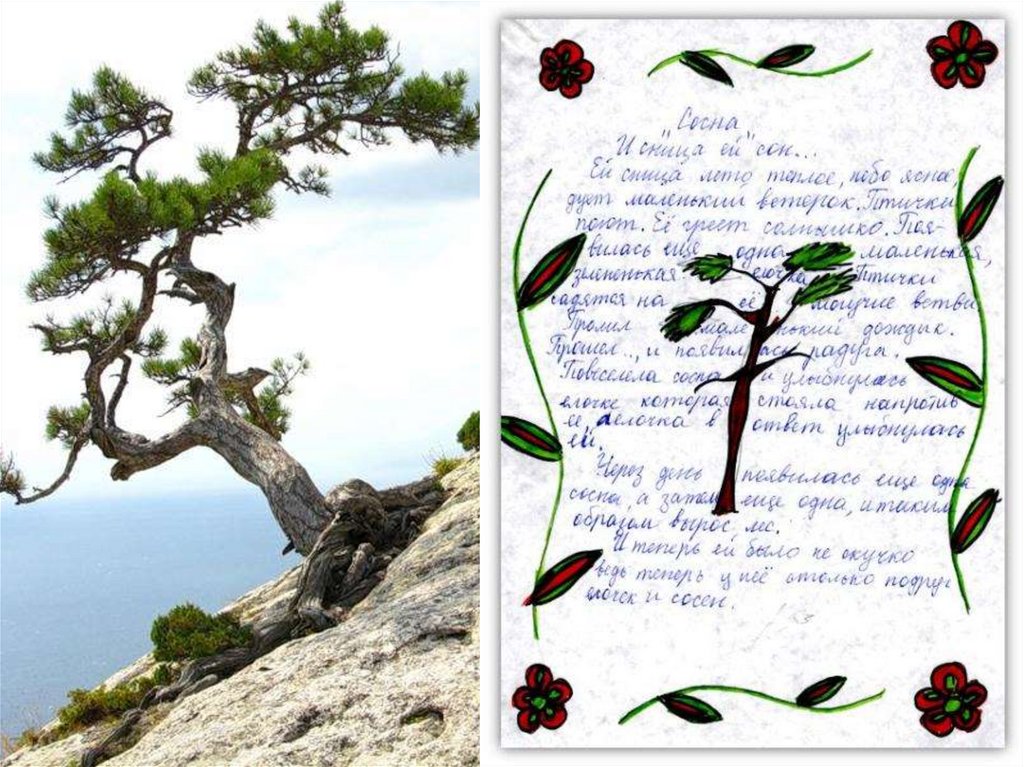 "Сосна"
И сница ей сон...
Ей сница лето теплое, небо ясное
дует маленький ветерок. Птички
поют. Её греет солнышко. Поя-
вилась еще одна маленькая,
зелененькая елочка. Птички
садятся на её могучие ветви.
Пролил маленький дождик.
Прошел.., и появилась радуга.
Повеселела сосна и улыбнулась
елочке которая стояла напротив
ее, а елочка в ответ улыбнулась
ей.
Через день появилась еще одна
сосна, а затем еще одна, и таким
образом вырос лес.
И теперь ей было не скучко
ведь теперь у неё столько подруг
елочек и сосен.